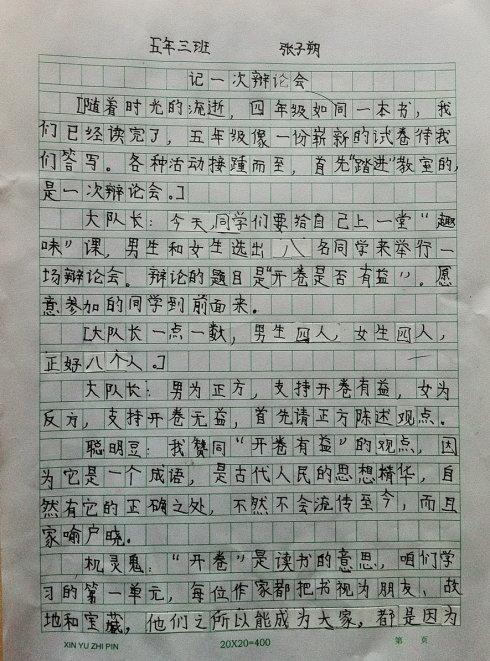 五年三班 张子朔
记一次辩论会
[随着时光的流逝，四年级如同一本书，我
们已经读完了，五年级像一份崭新的试卷待我
们答写。各种活动接踵而至，首先"踏进"教室的，
是一次辩论会。]
大队长：今天，同学们要给自己上一堂"趣
味"课，男生和女生选出八名同学来举行一
场辩论会。辩论的题目是"开卷是否有益"。愿
意参加的同学到前面来。
[大队长一点一数，男生四人，女生四人，
正好八个人。]
大队长：男为正方，支持开卷有益，女为
反方，支持开卷无益，首先请正方陈述观点。
聪明豆：我赞同"开卷有益"的观点，因
为它是一个成语，是古代人民的思想精华，自
然有它的正确之处，不然不会流传至今，而且
家喻户晓。
机灵鬼："开卷"是读书的意思，咱们学
习的第一单元，每位作家都把书视为朋友、故
地和宝藏，他们之所以能成为大家，都是因为
XIN YU ZHI PIN 20X20=400 第 页